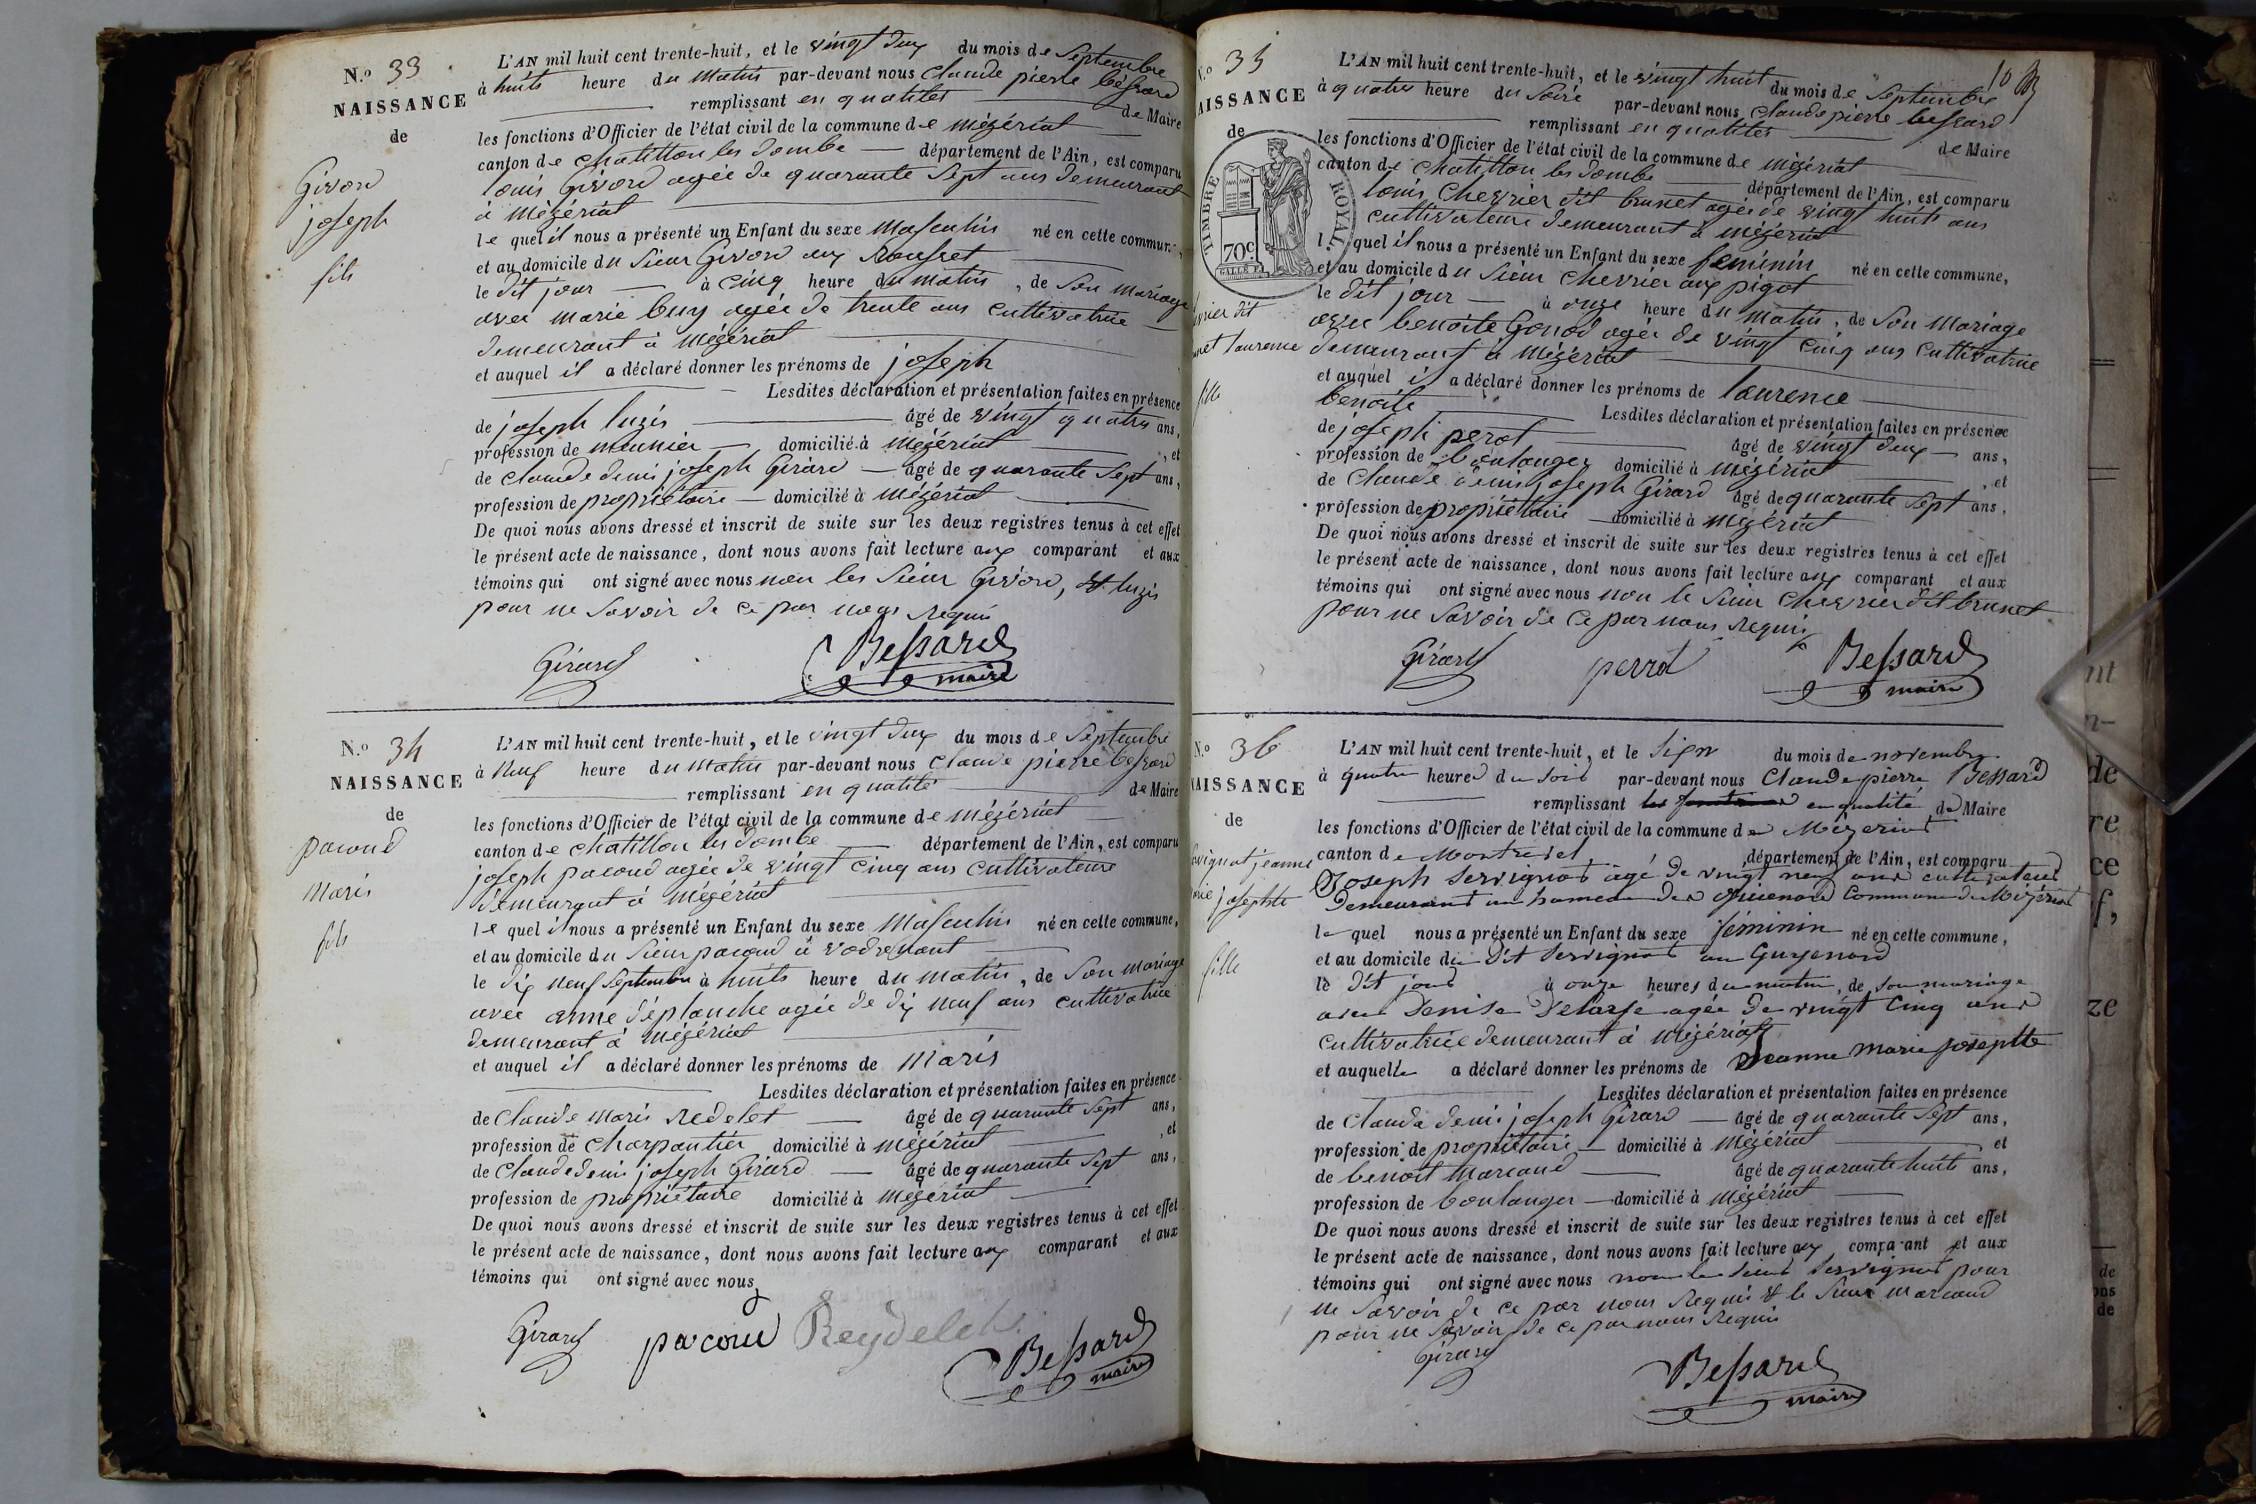 N.o 33
NAISSANCE
de
Givord
joseph
fils
L'AN mil huit cent trente-huit, et le vingt deux du mois de Septembre
à huits heure du Matin par-devant nous Claude pierre Bessard
remplissant en qualites de Maire
les fonctions d'Officier de l'état civil de la commune de mézériat
canton de Chatillon les Dombe département de l'Ain, est comparu
louis Givord agée de quarante Sept ans demeurant
à mézériat
le quel il nous a présenté un Enfant du sexe Masculin né en cette commune,
et au domicile du Sieur Givord aux
le dit jour à cinq heure du matin, de Son mariage
avec marie buy agée de trente ans Cultivatrice
demeurant à mézériat
et auquel il a déclaré donner les prénoms de joseph
Lesdites déclaration et présentation faites en présence
de joseph luzis âgé de vingt quatre ans,
profession de meunier domicilié à mézériat, et
de Claude denis joseph Girard âgé de quarante Sept ans,
profession de propriétaire domicilié à mézériat
De quoi nous avons dressé et inscrit de suite sur les deux registres tenus à cet effet
le présent acte de naissance, dont nous avons fait lecture aux comparant et aux
témoins qui ont signé avec nous non les Sieur Givord, et luzis
pour ne Savoir de ce par nous Requis
Girard Bessard
maire
N.o 34
NAISSANCE
de
pacoud
Maris
fils
L'AN mil huit cent trente-huit, et le vingt deux du mois de Septembre
à Neuf heure du Matin par-devant nous Claude pierre Bessard
remplissant en qualité de Maire
les fonctions d'Officier de l'état civil de la commune de mézériat
canton de Chatillon les Dombe département de l'Ain, est comparu
joseph pacoud agée de vingt cinq ans cultivateure
demeurant à Mézériat
le quel il nous a présenté un Enfant du sexe Masculin né en cette commune,
et au domicile du Sieur pacoud à
le dix neuf Septembre à huits heure du matin, de Son mariage
avec anne déplanche agée de dix neuf ans cultivatrice
demeurant à Mézériat
et auquel il a déclaré donner les prénoms de Maris
Lesdites déclaration et présentation faites en présence
de Claude Maris Redelet âgé de quarante Sept ans,
profession de Charpantier domicilié à mézériat, et
de Claude denis joseph Girard âgé de quarante Sept ans,
profession de propriétaire domicilié à Mézériat
De quoi nous avons dressé et inscrit de suite sur les deux registres tenus à cet effet
le présent acte de naissance, dont nous avons fait lecture aux comparant et aux
témoins qui ont signé avec nous
Girard pacoud Reydelet
Bessard
maire
N.o 35
NAISSANCE
de
TIMBRE ROYAL.
70c
vrier dit
net laurence
fille
10
L'AN mil huit cent trente-huit, et le vingt huit du mois de Septembre
à quatre heure du Soire par-devant nous Claude pierre Bessard
remplissant en qualites de Maire
les fonctions d'Officier de l'état civil de la commune de mézériat
canton de Chatillon les Dombe département de l'Ain, est comparu
louis Chevrier dit brunet agée de vingt huits ans
cultivateure demeurant à mézériat
l quel il nous a présenté un Enfant du sexe feminin né en cette commune,
et au domicile du Sieur Chevrier aux pigot
le dit jour à onze heure du matin, de Son mariage
avec benoite Gonod agée de vingt cinq ans cultivatrice
demeurant à Mézériat
et auquel il a déclaré donner les prénoms de laurence
benoite Lesdites déclaration et présentation faites en présence
de joseph perot âgé de vingt deux ans,
profession de boulanger domicilié à mézériat, et
de Claude denis joseph Girard âgé de quarante Sept ans,
profession de propriétaire domicilié à mézériat
De quoi nous avons dressé et inscrit de suite sur les deux registres tenus à cet effet
le présent acte de naissance, dont nous avons fait lecture aux comparant et aux
témoins qui ont signé avec nous non le Sieur Chevrier dit brunet
pour ne Savoir de ce par nous Requis
Girard perrot Bessard
maire
N.o 36
NAISSANCE
de
vignat jeanne
rie josephte
fille
L'AN mil huit cent trente-huit, et le Sept du mois de novembre
à quatre heures du soir par-devant nous Claude pierre Bessard
remplissant en qualité de Maire
les fonctions d'Officier de l'état civil de la commune de Mézeriat
canton de Montrevel département de l'Ain, est comparu
Joseph Servignat agé de vingt neuf ans cultivateur
Demeurant au hameau des Guienard Commune de Mézériat
le quel nous a présenté un Enfant du sexe féminin né en cette commune,
et au domicile du Dit Servignat au Guyenard
le Dit jour à onze heures du matin, de son mariage
avec Denise Delarse agée de vingt Cinq ans
cultivatrice demeurant à Mézériat
et auquelle a déclaré donner les prénoms de Jeanne Marie Josephte
Lesdites déclaration et présentation faites en présence
de Claude denis joseph Girard âgé de quarante Sept ans,
profession de propriétaire domicilié à Mézériat et
de benoit Marcaud âgé de quarante huits ans,
profession de boulanger domicilié à Mézériat
De quoi nous avons dressé et inscrit de suite sur les deux registres tenus à cet effet
le présent acte de naissance, dont nous avons fait lecture aux comparant et aux
témoins qui ont signé avec nous non le Sieur Servignat pour
ne Savoir de ce par nous Requis & le Sieur Marcaud
pour ne Savoir de ce par nous Requis
Girard
Bessard
maire
nt
n-
de
re
ce
f,
ze
de
ons
de